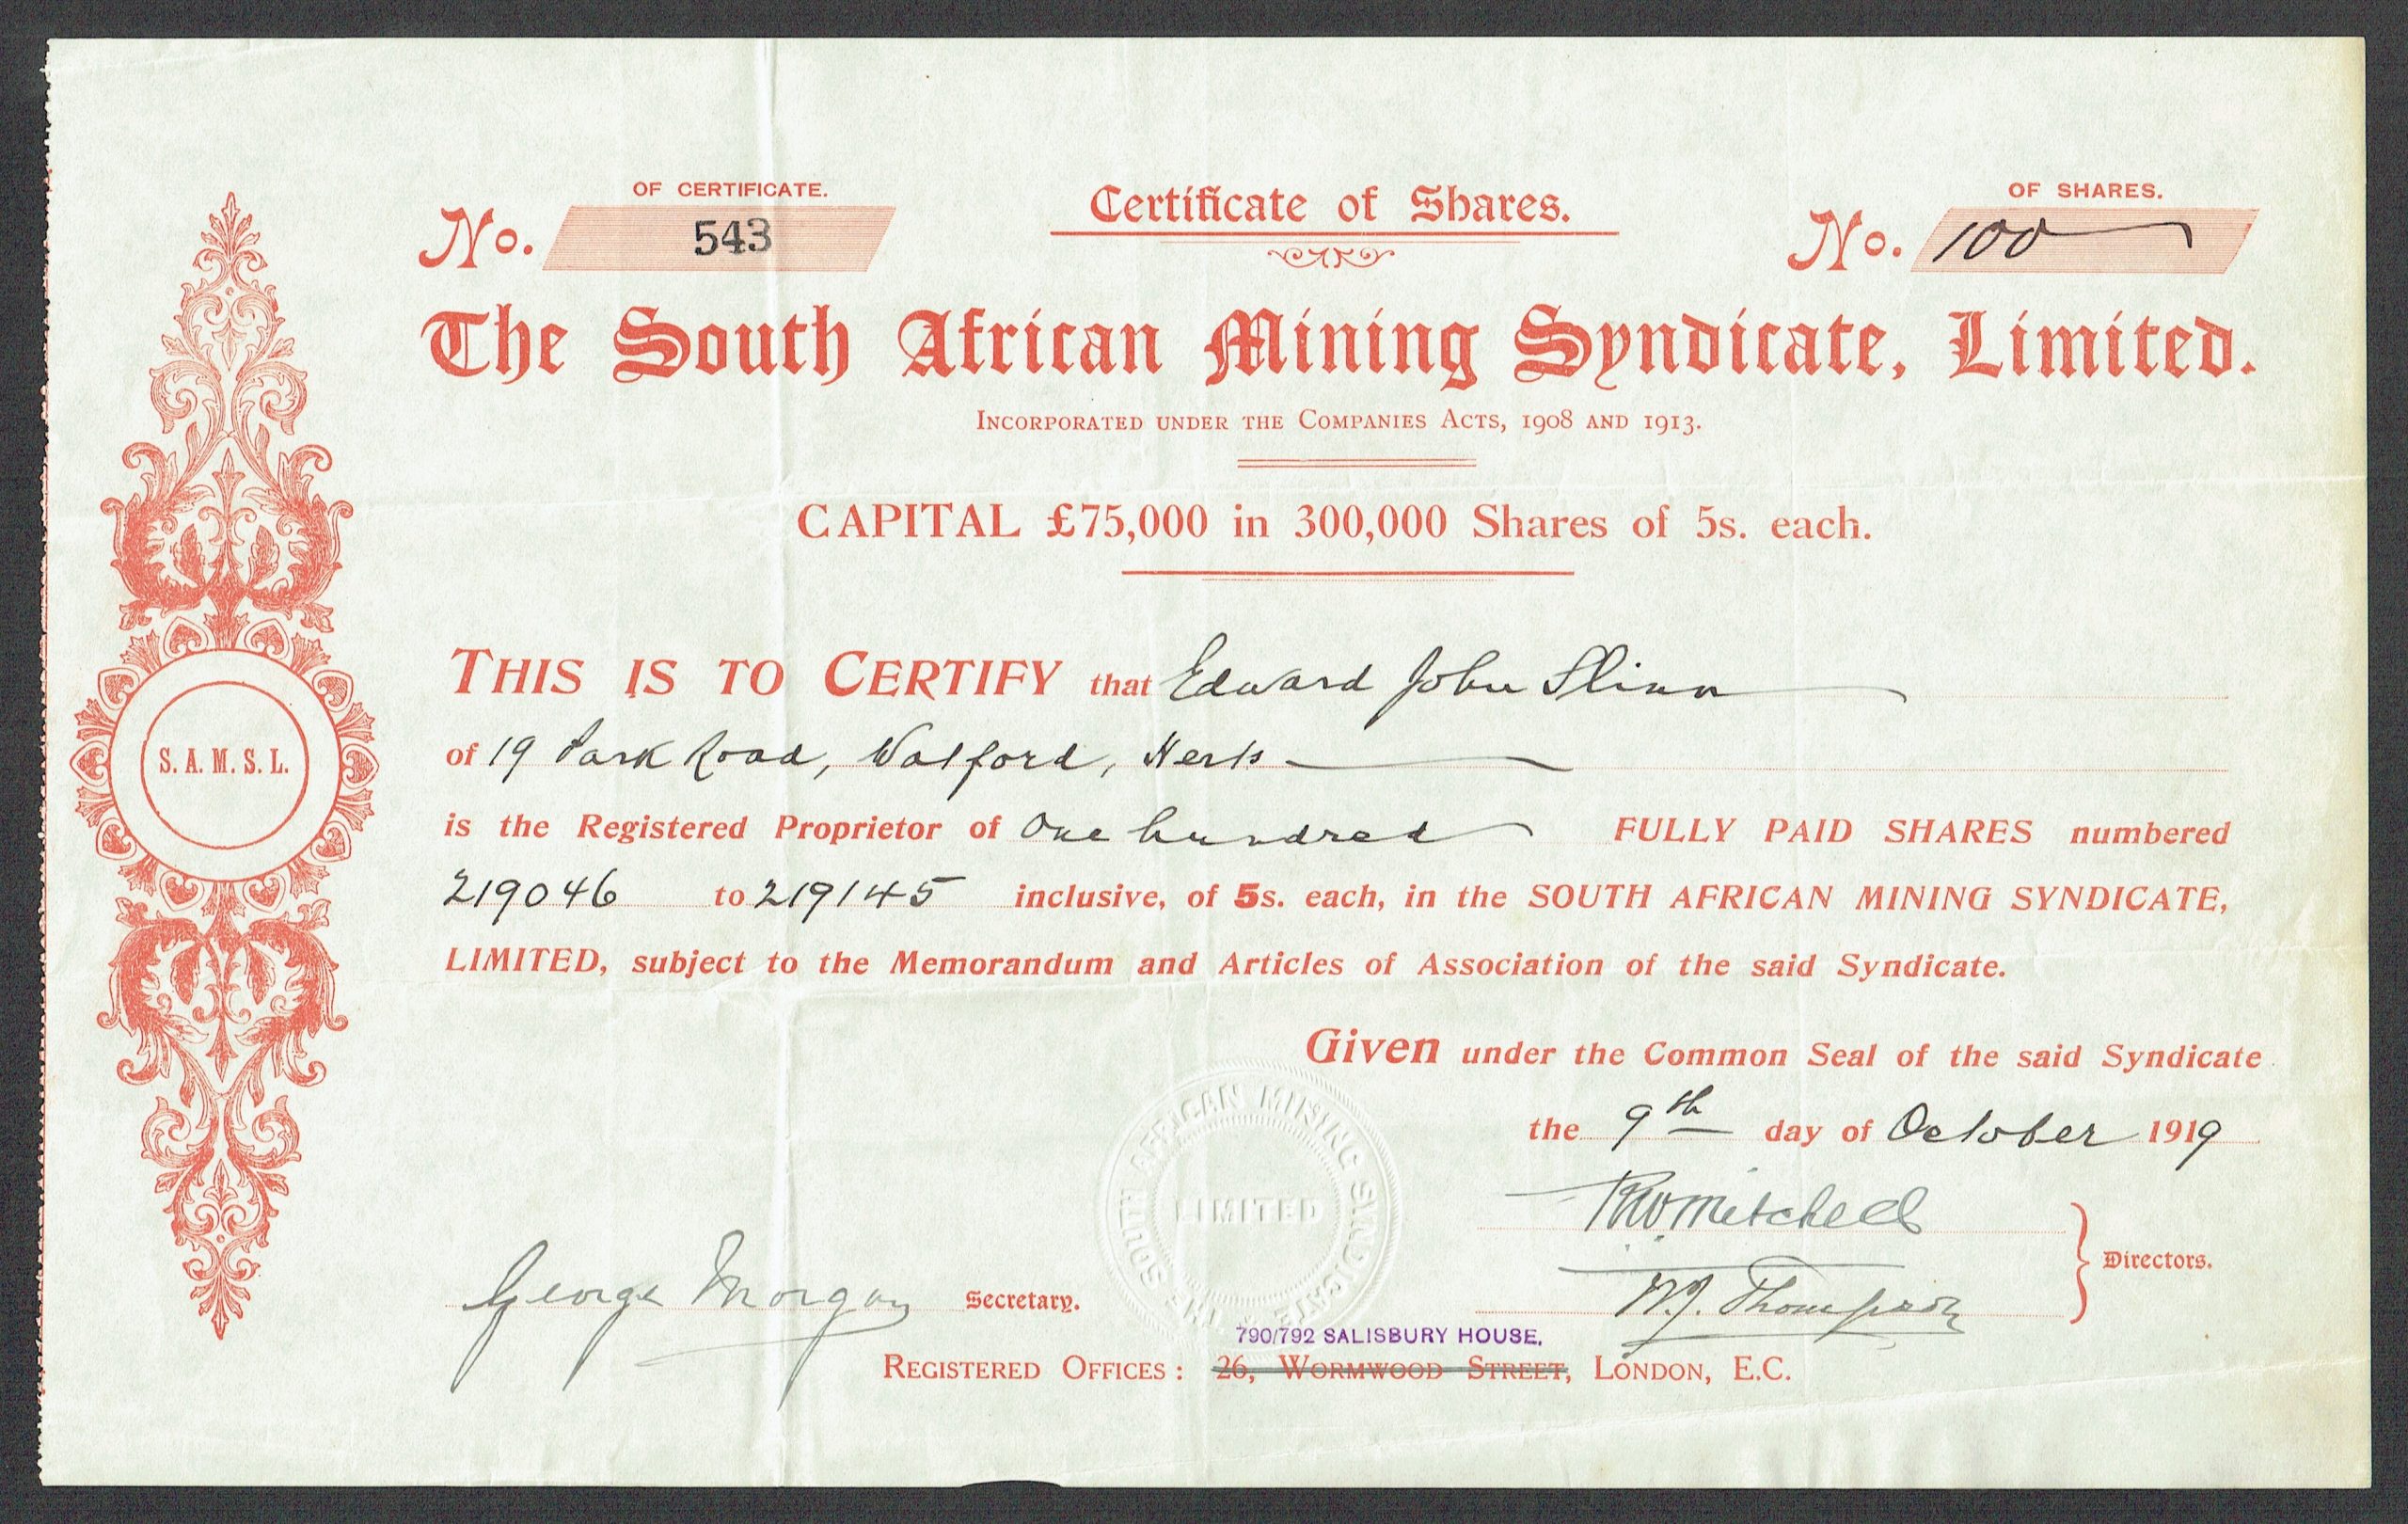 OF CERTIFICATE.
No. 543
Certificate of Shares.
OF SHARES.
No. 100
The South African Mining Syndicate, Limited.
INCORPORATED UNDER THE COMPANIES ACTS, 1908 AND 1913.
CAPITAL £75,000 in 300,000 Shares of 5s. each.
THIS IS TO CERTIFY that Edward John Slinn
of 19 Park Road, Watford, Herts
S. A. M. S. L.
is the Registered Proprietor of One hundred FULLY PAID SHARES numbered
219046 to 219145 inclusive, of 5s. each, in the SOUTH AFRICAN MINING SYNDICATE,
LIMITED, subject to the Memorandum and Articles of Association of the said Syndicate.
Given under the Common Seal of the said Syndicate
the 9th day of October 1919
THE SOUTH AFRICAN MINING SYNDICATE
LIMITED
Mitchell
W.J. Thompson
Directors.
George Morgan Secretary.
790/792 SALISBURY HOUSE.
REGISTERED OFFICES: 26, WORMWOOD STREET, LONDON, E.C.